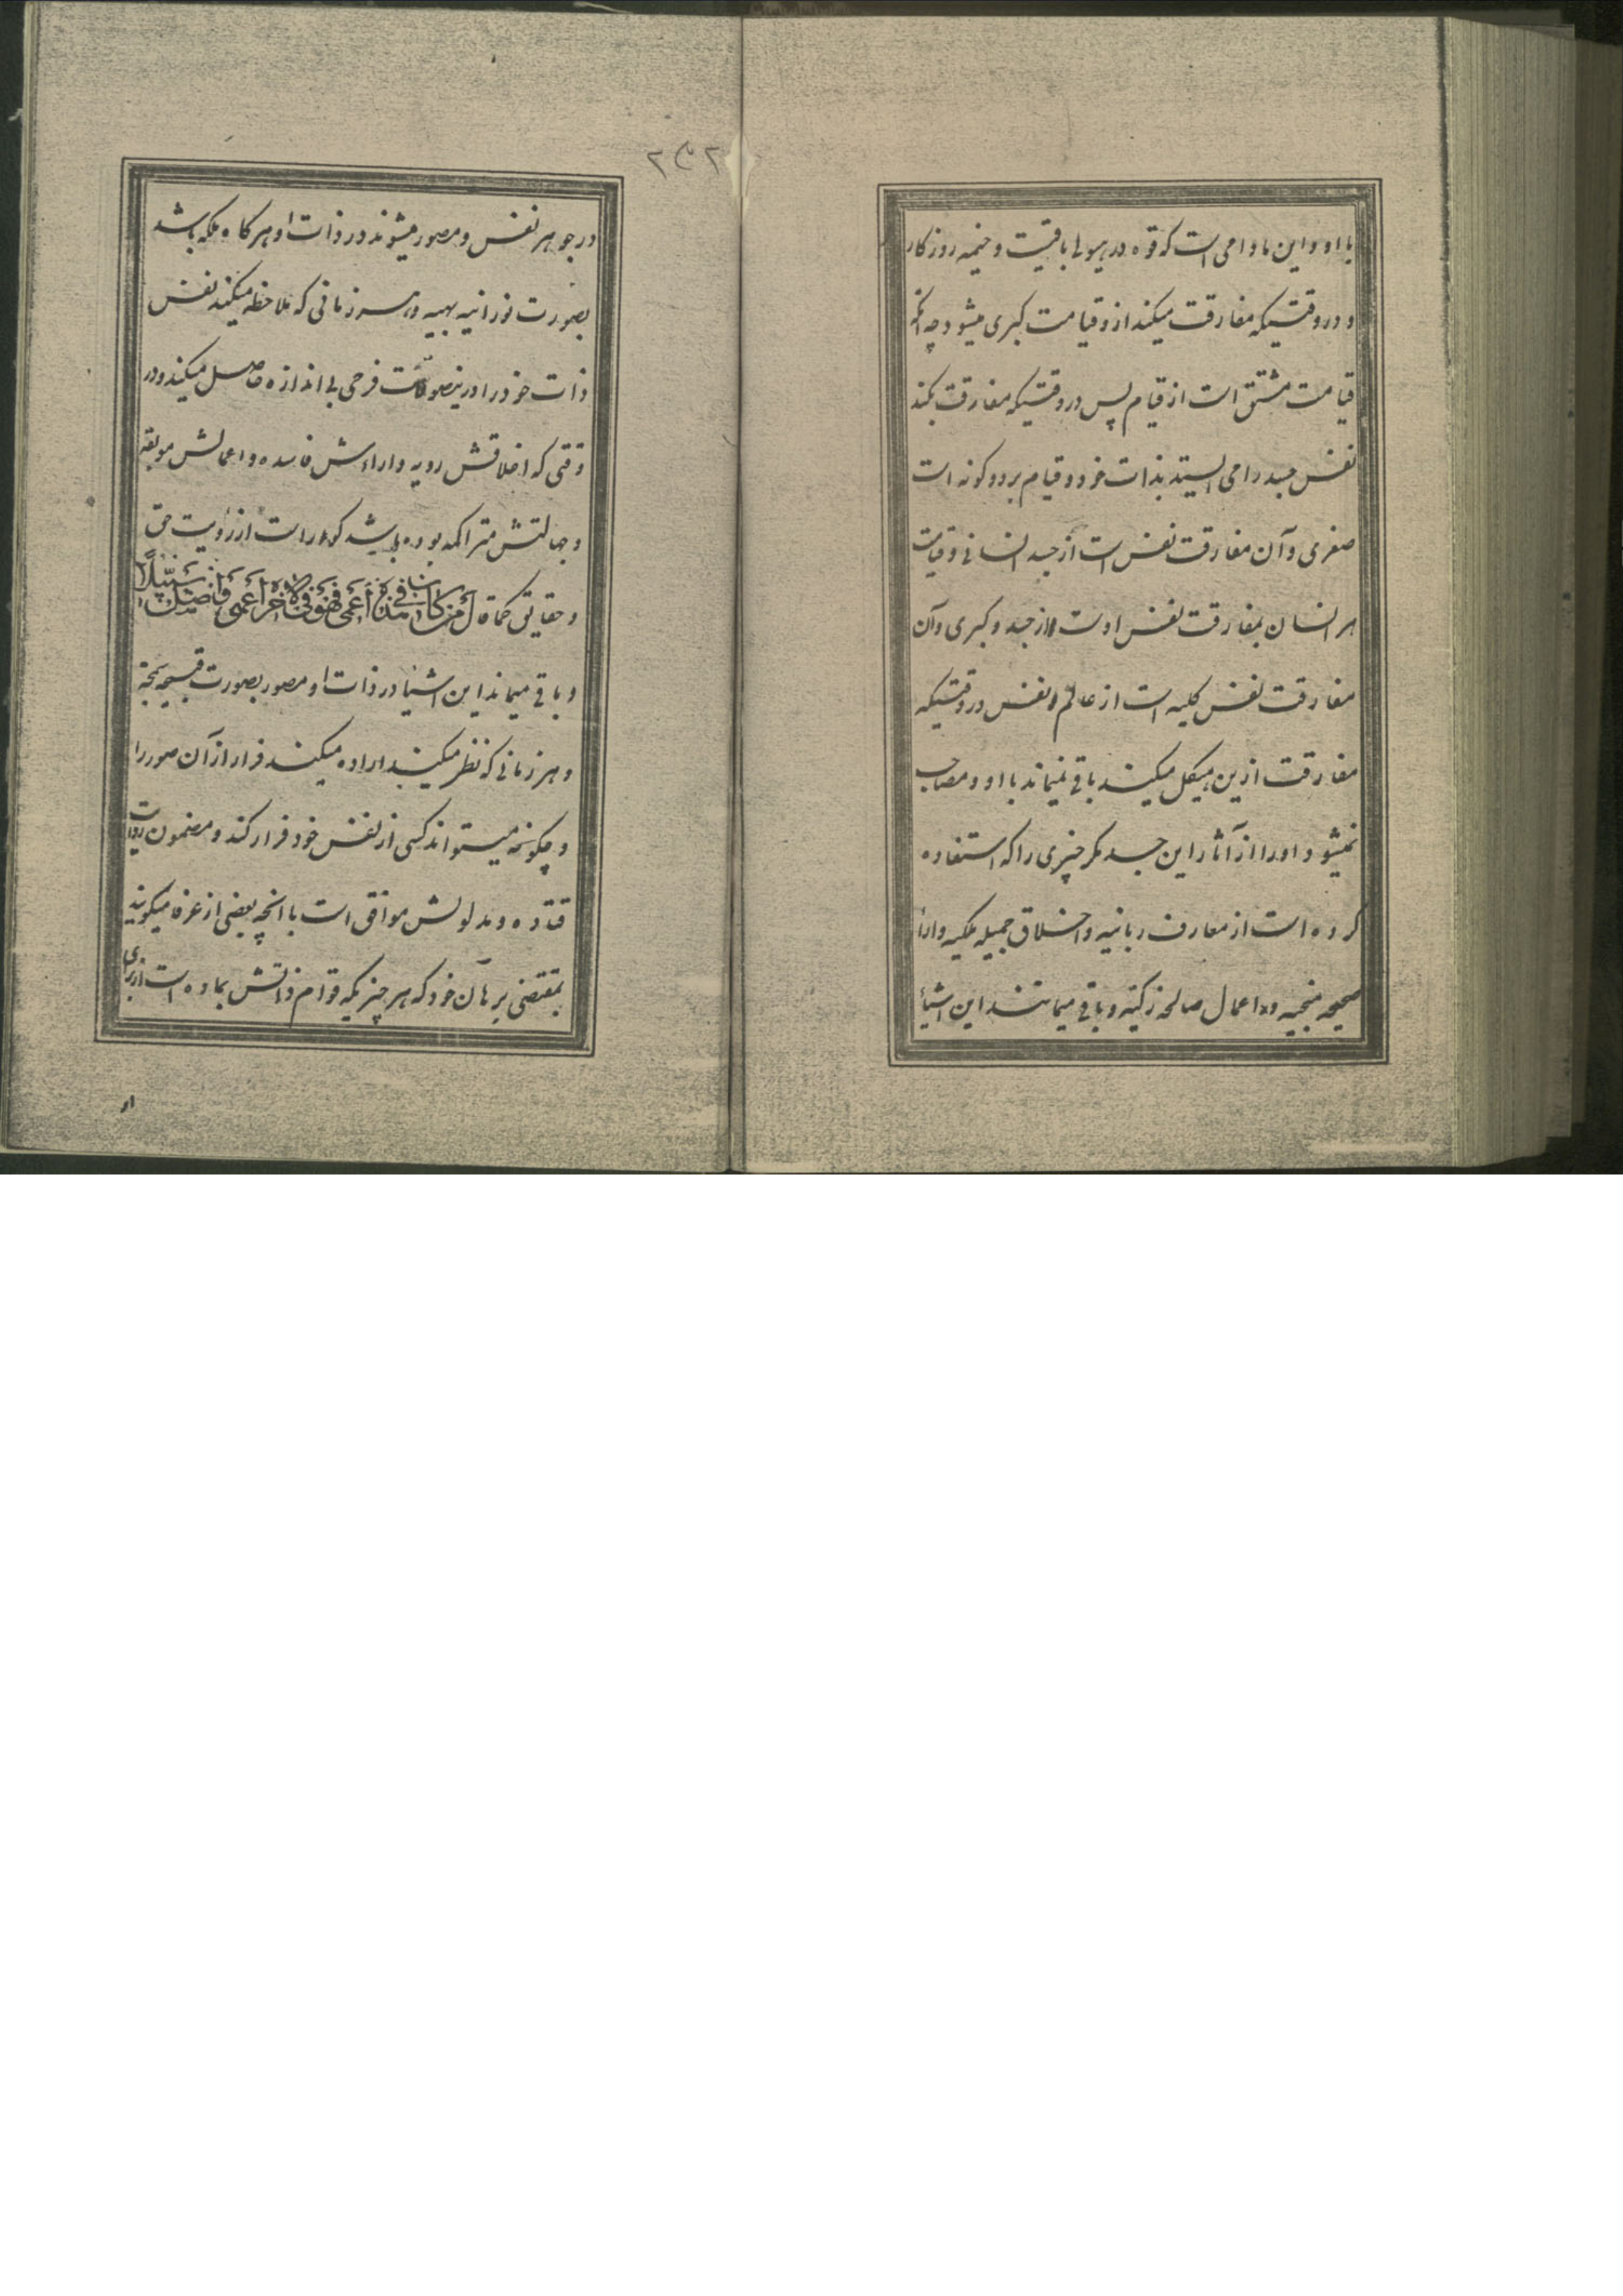 با او و این مادامی است که قوه در هیولی باقیست و خیمه روزکار
و در وقتیکه مفارقت میکند ازو قیامت کبری میشود چه انکه
قیامت مشتق است از قیام پس در وقتیکه مفارقت بکند
نفس جسد را می ایستد بذات خود و قیام بر دو کونه است
صغری و آن مفارقت نفس است از جسد انسانی و قیامت
هر انسان بمفارقت نفس اوست از جسد و کبری و آن
مفارقت نفس کلیه است از عالم و نفس در وقتیکه
مفارقت ازین هیکل میکند باقی نمیماند با او و مصاحب
نمیشود او را از آثار این جسد مکر چیزی را که استفاده
کرده است از معارف ربانیه و اخلاق جمیله ملکیه و اراء
صحیحه منجیه و اعمال صالحه زکیه و باقی میمانند این اشیاء
۲۳۲
در جوهر نفس و مصور میشوند در ذات او هرکاه ملکه باشد
بصورت نورانیه بهیه و هر زمانی که ملاحظه میکند نفس
ذات خود را درینصورت فرحی بی اندازه حاصل میکند و در
وقتی که اخلاقش ردیه و اراءش فاسده و اعمالش موبقه
و جهالتش متراکمه بوده باشد کور است از رؤیت حق
و حقایق کما قال مَن کانَ فی هذِهِ أَعمی فَهُوَ فِی الآخِرَةِ أَعمی وَأَضَلُّ سَبیلًا
و باقی میماند این اشیا در ذات او مصور بصورت قبیحه سمجه
و هر زمانی که نظر میکند اراده میکند فرار از آن صور را
و چکونه میتواند کسی از نفس خود فرار کند و مضمون روایت
قتاده و مدلولش موافق است با انچه بعضی از عرفا میکویند
بمقتضی برهان خود که هر چیزیکه قوام ذاتش بماده است از برای
او